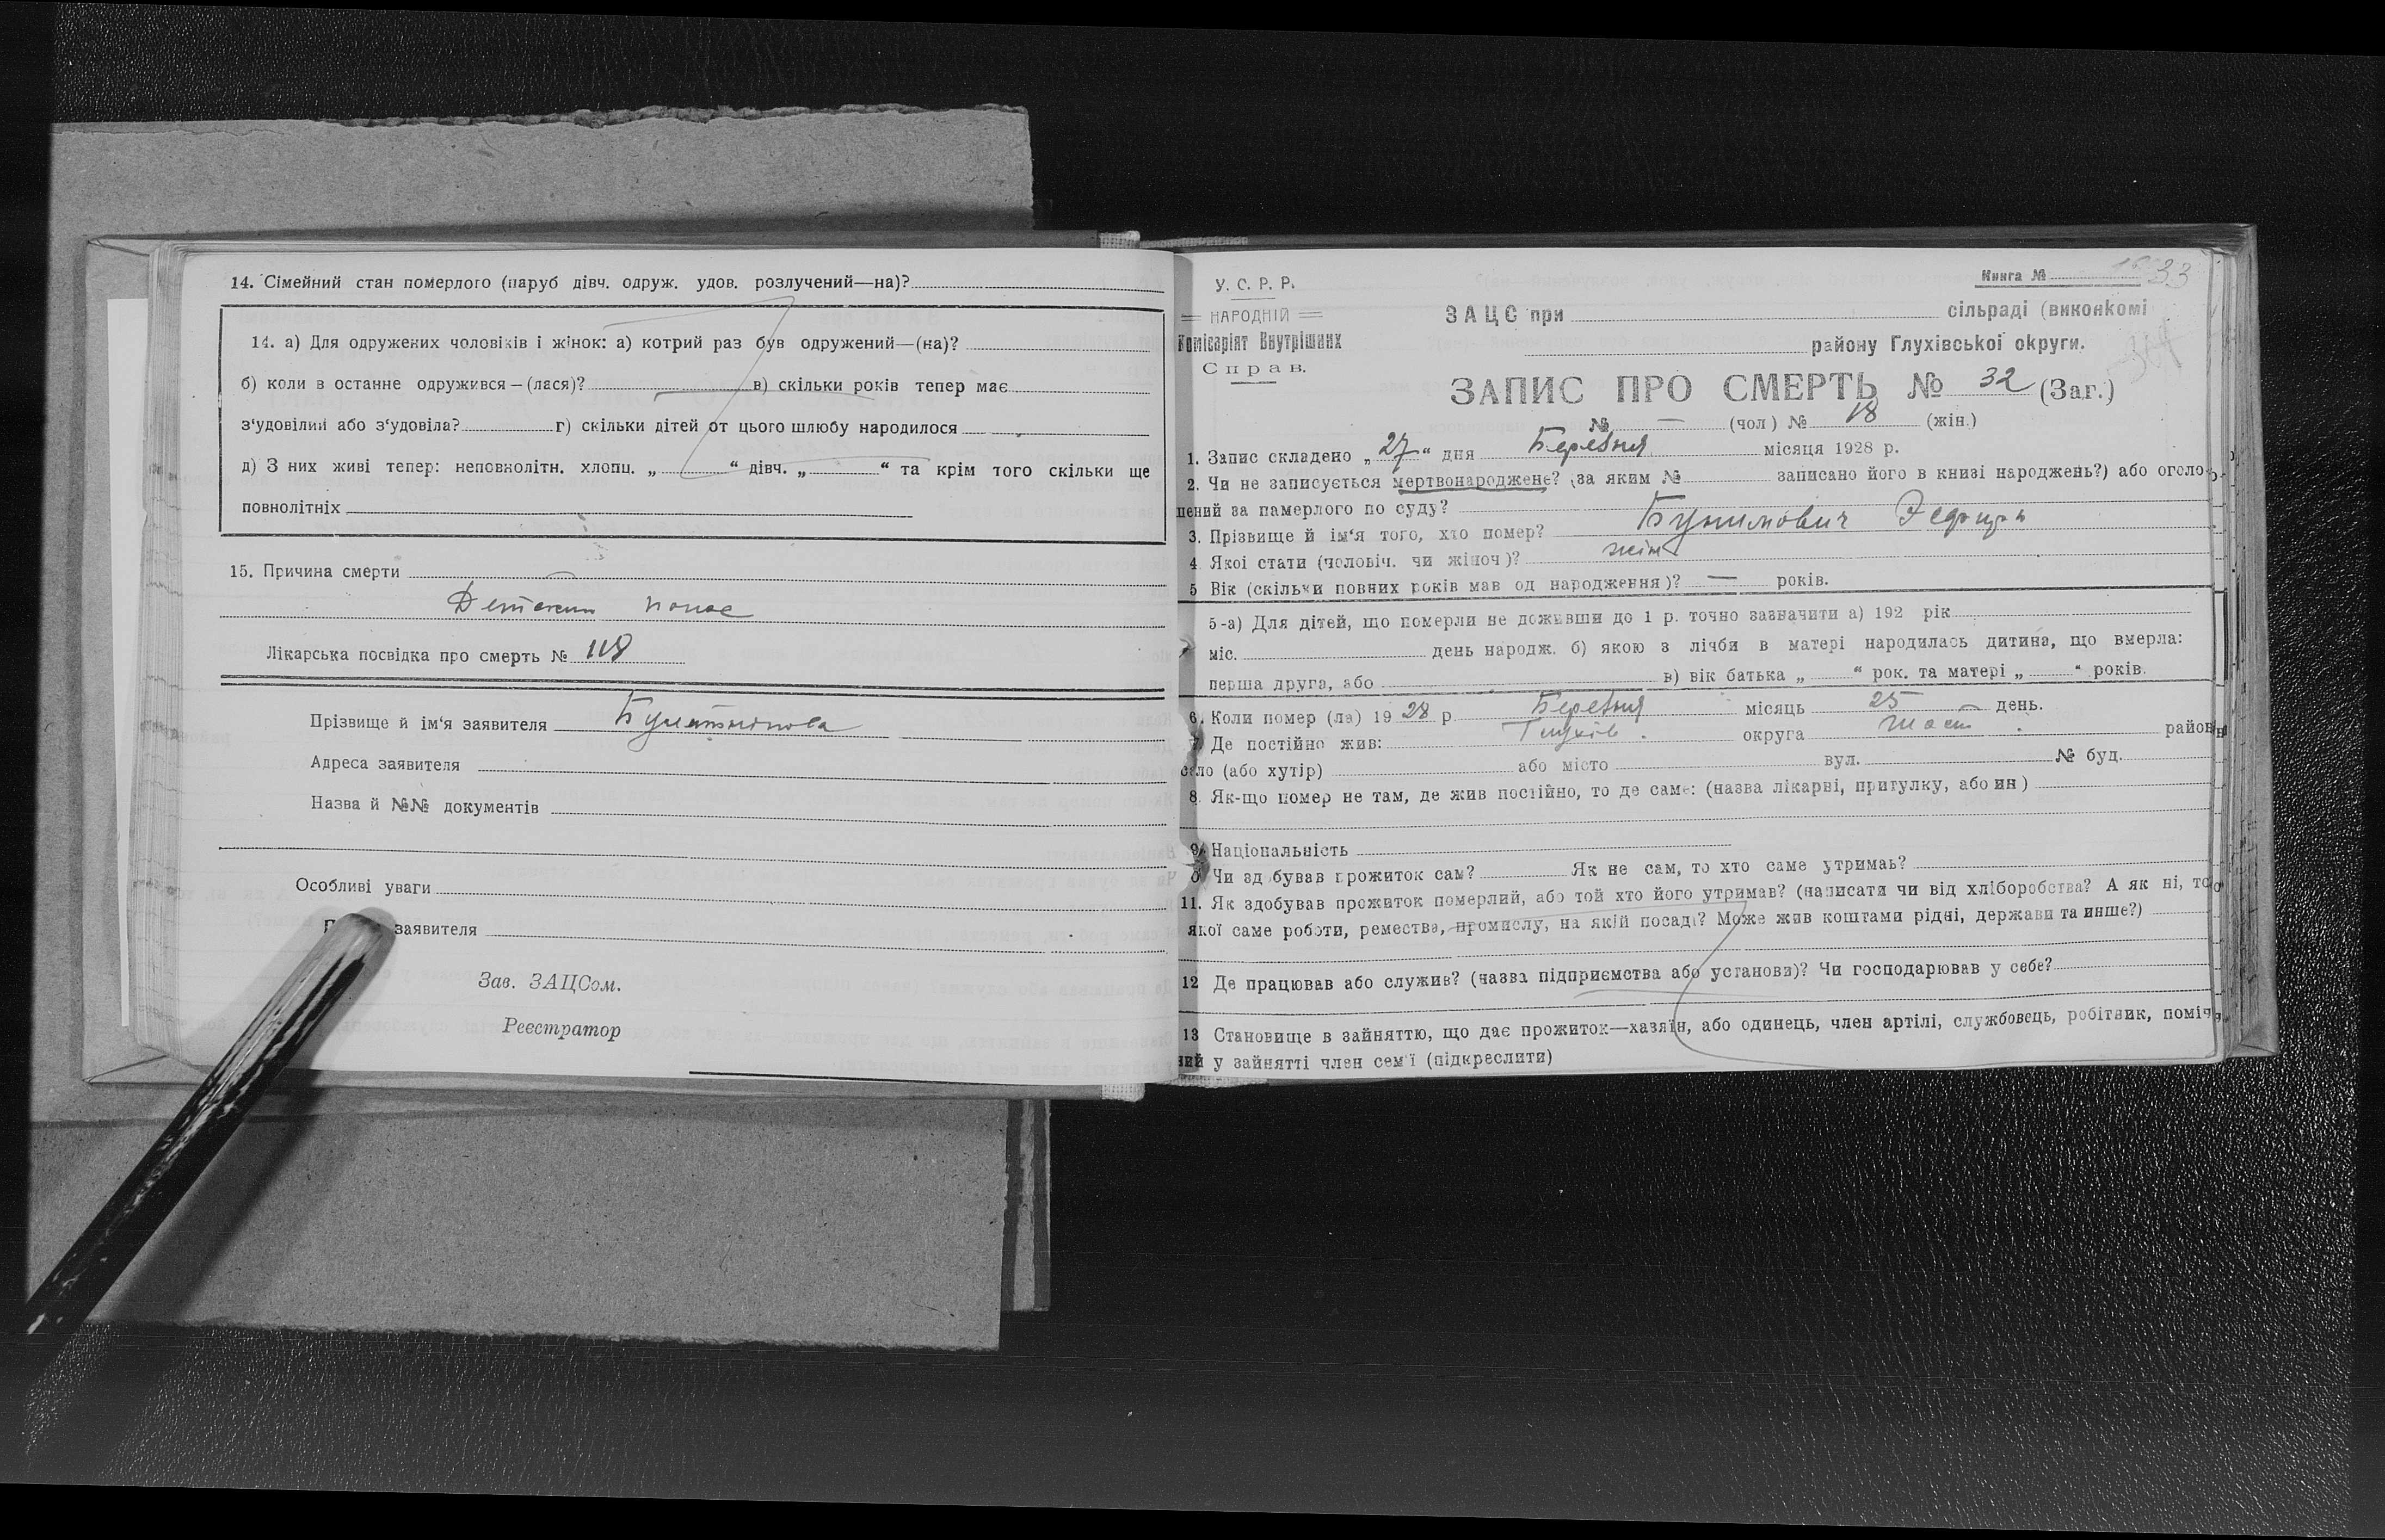 14. Сімейний стан померлого (паруб дівч. одруж. удов. розлучений—на)?
14. а) Для одружених чоловіків і жінок: а) котрий раз був одружений—(на)?
б) коли в останне одружився—(лася)? в) скільки років тепер має
з'удовілий або з'удовіла? г) скільки дітей от цього шлюбу народилося
д) З них живі тепер: неповнолітн. хлопц. „ “ дівч. „ “ та крім того скільки ще
повнолітніх
15. Причина смерти
понос
Лікарська посвідка про смерть № 118
Прізвище й ім'я заявителя
Адреса заявителя
Назва й №№ документів
Особливі уваги
заявителя
Зав. ЗАЦСом.
Реєстратор
У. С. Р. Р.
НАРОДНІЙ
Комісаріят Внутрішних
Справ.
Книга № 33
ЗАЦС при сільраді (виконкомі
району Глухівської округи.
ЗАПИС ПРО СМЕРТЬ № 32 (Заг.)
№ — (чол) № 18 (жін.)
1. Запис складено „27“ дня Березня місяця 1928 р.
2. Чи не записується мертвонароджене? (за яким № записано його в книзі народжень?) або оголо-
шений за памерлого по суду?
3. Прізвище й ім'я того, хто помер?
4. Якої стати (чоловіч. чи жіноч)? жін
5 Вік (скільки повних років мав од народження)? — років.
5-а) Для дітей, що померли не доживши до 1 р. точно зазначити а) 192 рік
міс. день народж. б) якою з лічби в матері народилась дитина, що вмерла:
перша друга, або в) вік батька „ “ рок. та матері „ “ років.
6. Коли помер (ла) 1928 р Березня місяць 25 день.
7. Де постійно жив: Глухів. округа район
село (або хутір) або місто вул. № буд.
8. Як-що помер не там, де жив постійно, то де саме: (назва лікарні, притулку, або ин)
9. Національність
Чи здобував прожиток сам? Як не сам, то хто саме утримаь?
11. Як здобував прожиток померлий, або той хто його утримав? (написати чи від хліборобства? А як ні, то
якої саме роботи, ремества, промислу, на якій посаді? Може жив коштами рідні, держави та инше?)
12 Де працював або служив? (назва підприємства або установи)? Чи господарював у себе?
13 Становище в зайняттю, що дає прожиток—хазяїн, або одинець, член артілі, службовець, робітник, поміч
ний у зайнятті член сем'ї (підкреслити)